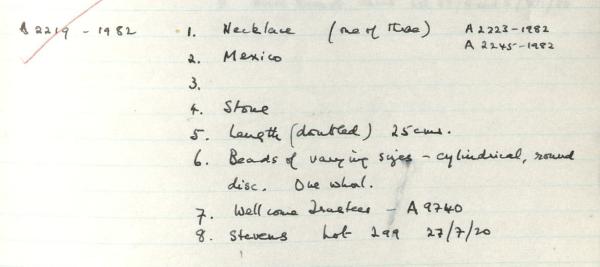 A2219 - 1982 1. Necklace (one of three) A2223-1982
A2245-1982
2. Mexico
3.
4. Stone
5. Length (doubled) 25cms.
6. Beads of varying sizes - cylindrical, round
disc. One whorl.
7. Wellcome Trustees - A9740
8. Stevens Lot 299 27/7/20